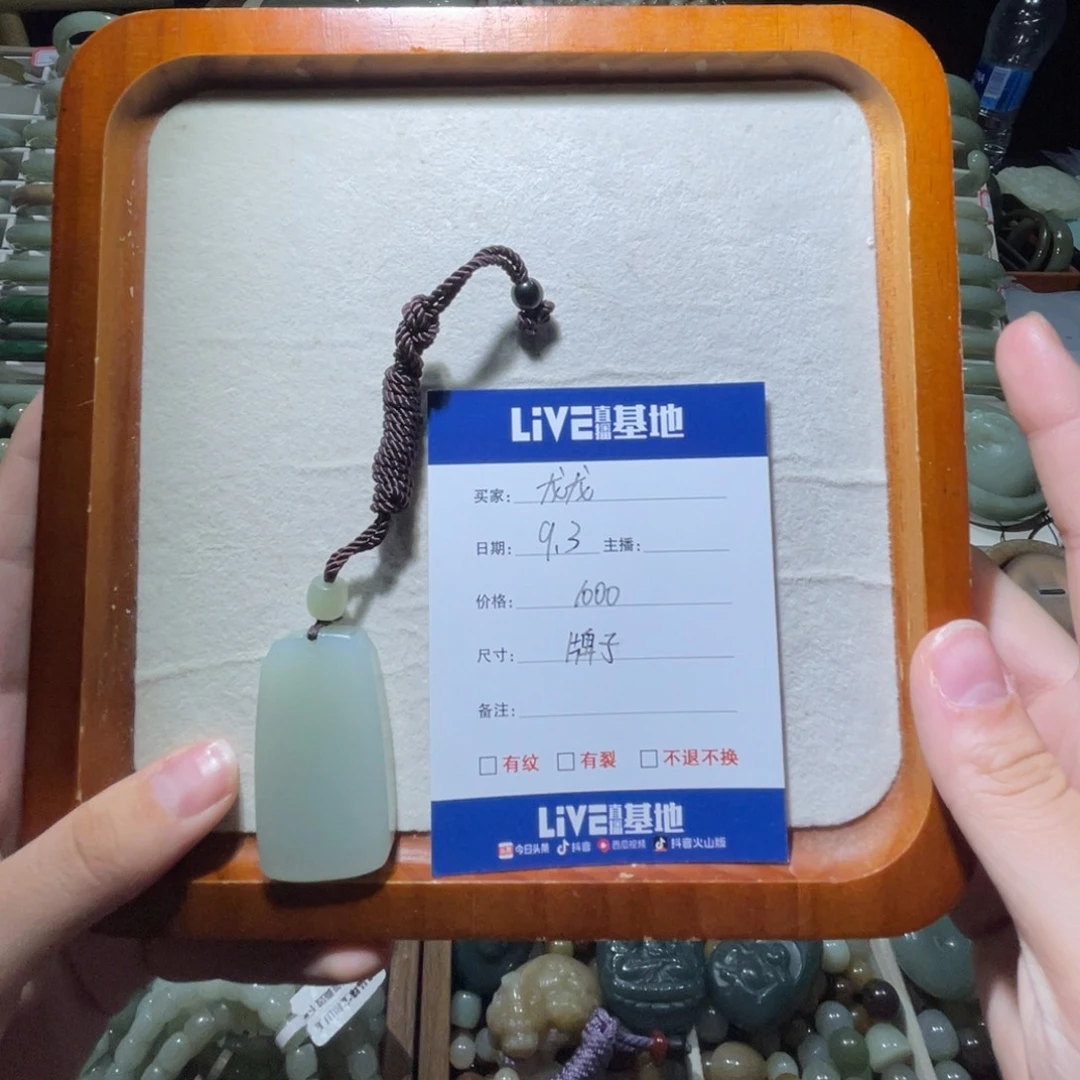 LiVE直播基地
买家: 龙龙
日期: 9.3 主播:
价格: 1600
尺寸: 牌子
备注:
□有纹 □有裂 □不退不换
LiVE直播基地
今日头条 抖音 西瓜视频 抖音火山版